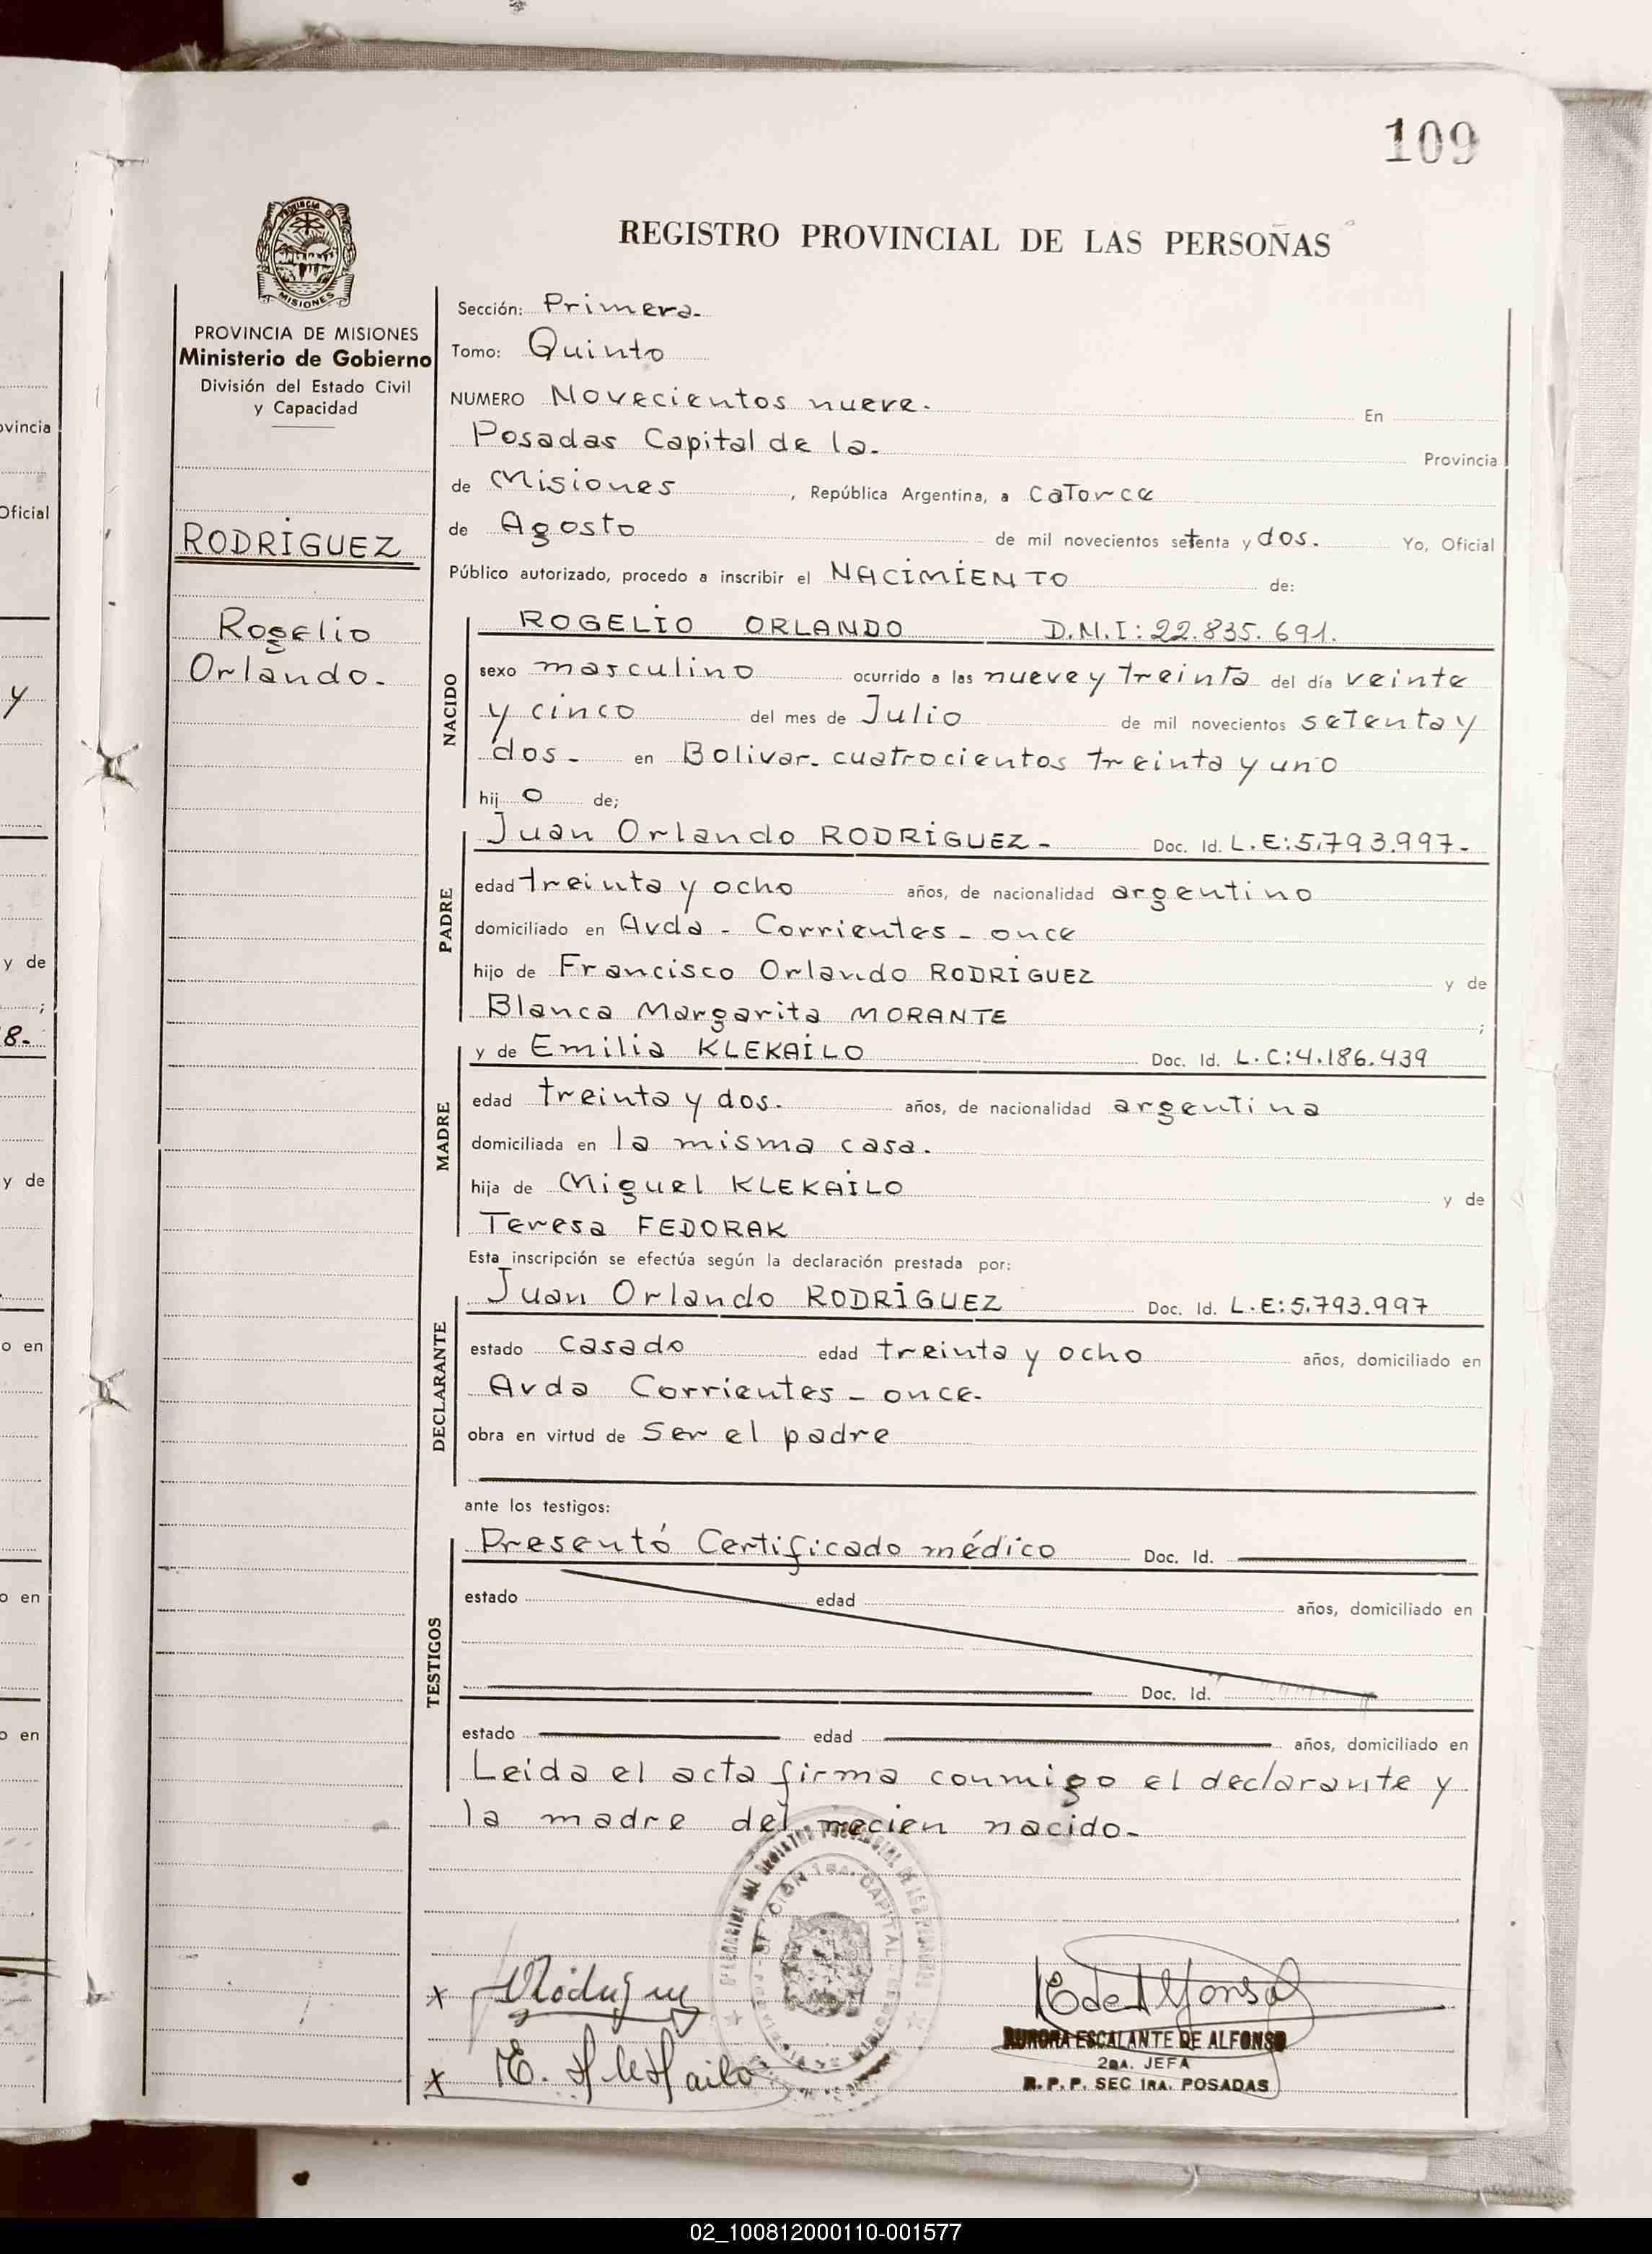 109
PROVINCIA DE
MISIONES
REGISTRO PROVINCIAL DE LAS PERSOÑAS
PROVINCIA DE MISIONES
Ministerio de Gobierno
División del Estado Civil
y Capacidad
RODRÍGUEZ
Rogelio
Orlando.-
Sección: Primera.-
Tomo: Quinto
NUMERO Novecientos nueve.- En
Posadas Capital de la.- Provincia
de Misiones, República Argentina, a catorce
de Agosto de mil novecientos setenta y dos. Yo, Oficial
Público autorizado, procedo a inscribir el NACIMIENTO de:
NACIDO
ROGELIO ORLANDO D.N.I: 22.835.691.
sexo masculino ocurrido a las nueve y treinta del día veinte
y cinco del mes de Julio de mil novecientos setenta y
dos.- en Bolivar.- cuatrocientos treinta y uno
hij o de;
PADRE
Juan Orlando RODRÍGUEZ.- Doc. Id. L.E: 5.793.997.-
edad treinta y ocho años, de nacionalidad argentino
domiciliado en Avda - Corrientes - once
hijo de Francisco Orlando RODRÍGUEZ y de
Blanca Margarita MORANTE ;
MADRE
y de Emilia KLEKAILO Doc. Id. L.C: 4.186.439
edad treinta y dos. años, de nacionalidad argentina
domiciliada en la misma casa.
hija de Miguel KLEKAILO y de
Teresa FEDORAK
Esta inscripción se efectúa según la declaración prestada por:
DECLARANTE
Juan Orlando RODRÍGUEZ Doc. Id. L.E: 5.793.997
estado casado edad treinta y ocho años, domiciliado en
Avda Corrientes - once.-
obra en virtud de Ser el padre
ante los testigos:
TESTIGOS
Presentó Certificado médico Doc. Id.
estado edad años, domiciliado en
Doc. Id.
estado edad años, domiciliado en
Leida el acta firma conmigo el declarante y
la madre del recien nacido.-
x
x E. Klekailo
AURORA ESCALANTE DE ALFONSO
2DA. JEFA
R. P. P. SEC 1RA. POSADAS
ovincia
Oficial
y
y de
;
8.-
y de
o en
o en
o en
02_100812000110-001577